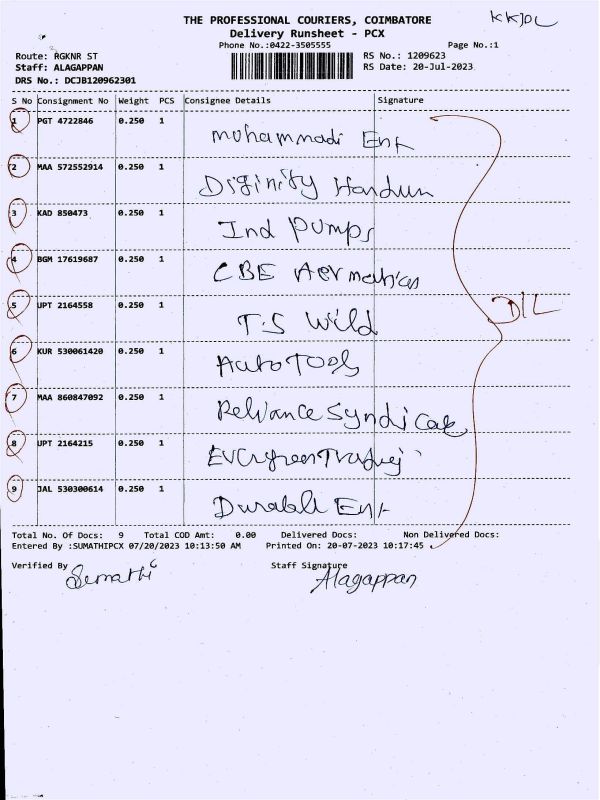 THE PROFESSIONAL COURIERS, COIMBATORE
Delivery Runsheet - PCX
Phone No.:0422-3505555 Page No.:1
Route: RGKNR ST RS No.: 1209623
Staff: ALAGAPPAN RS Date: 20-Jul-2023
DRS No.: DCJB120962301
S No Consignment No Weight PCS Consignee Details Signature
1 PGT 4722846 0.250 1
mohammadi Ent
2 MAA 572552914 0.250 1
3 KAD 850473 0.250 1
Ind Pumps
4 BGM 17619687 0.250 1
CBE
5 UPT 2164558 0.250 1
T.S Wild
6 KUR 530061420 0.250 1
Auto Tools
7 MAA 860847092 0.250 1
Reliance Syndicate
8 UPT 2164215 0.250 1
Evergreen
9 JAL 530300614 0.250 1
Durable Ent
Total No. Of Docs: 9 Total COD Amt: 0.00 Delivered Docs: Non Delivered Docs:
Entered By :SUMATHIPCX 07/20/2023 10:13:50 AM Printed On: 20-07-2023 10:17:45
Verified By Sumathi Staff Signature
Alagappan